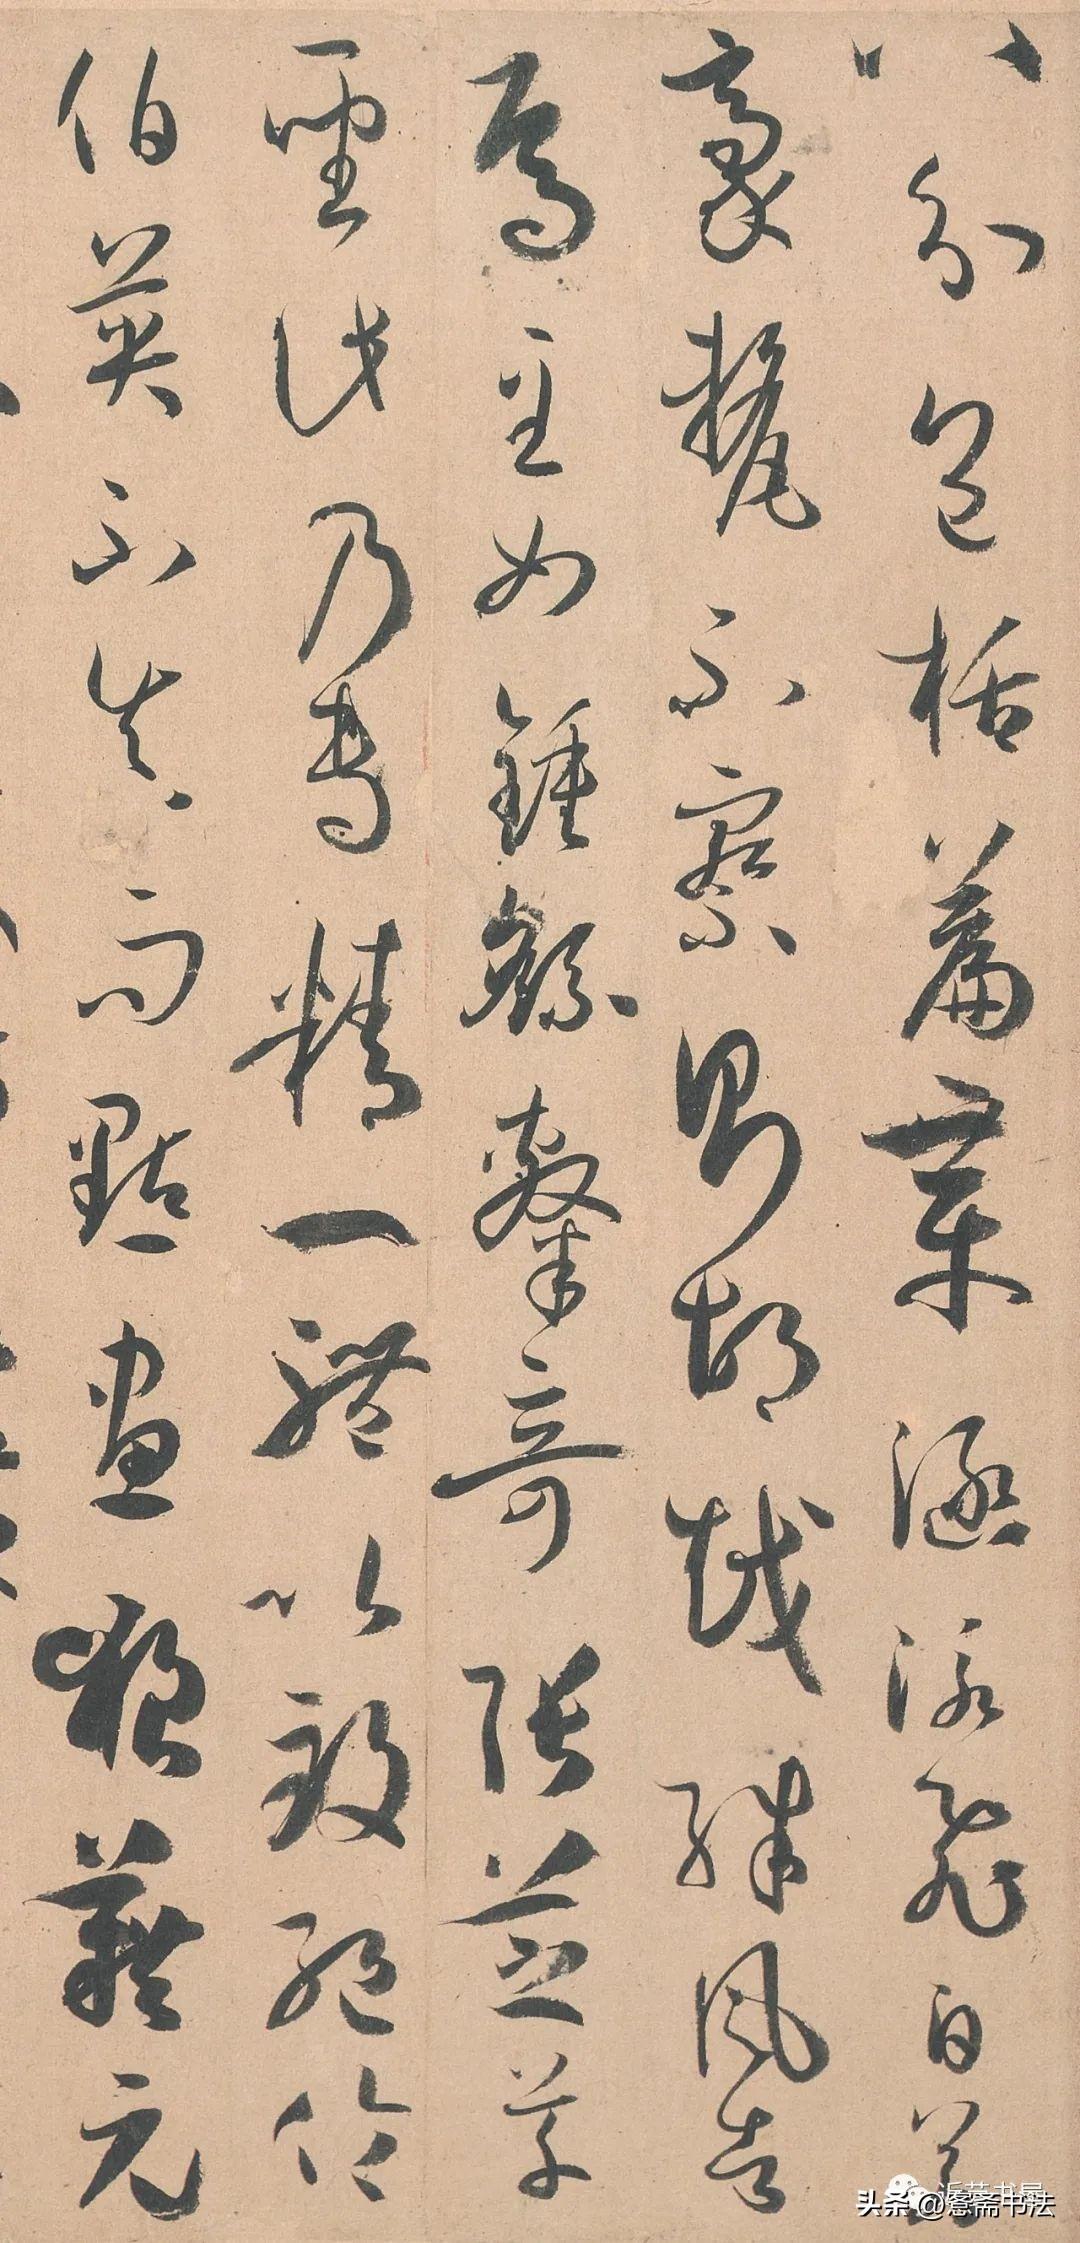 八分包括篇章涵泳飛白若
豪氂不察則胡越殊風者
焉至如鍾繇隸奇張芝草
聖此乃專精一體以致絕倫
伯英不真而點畫狼藉元
头条 @憃斋书法